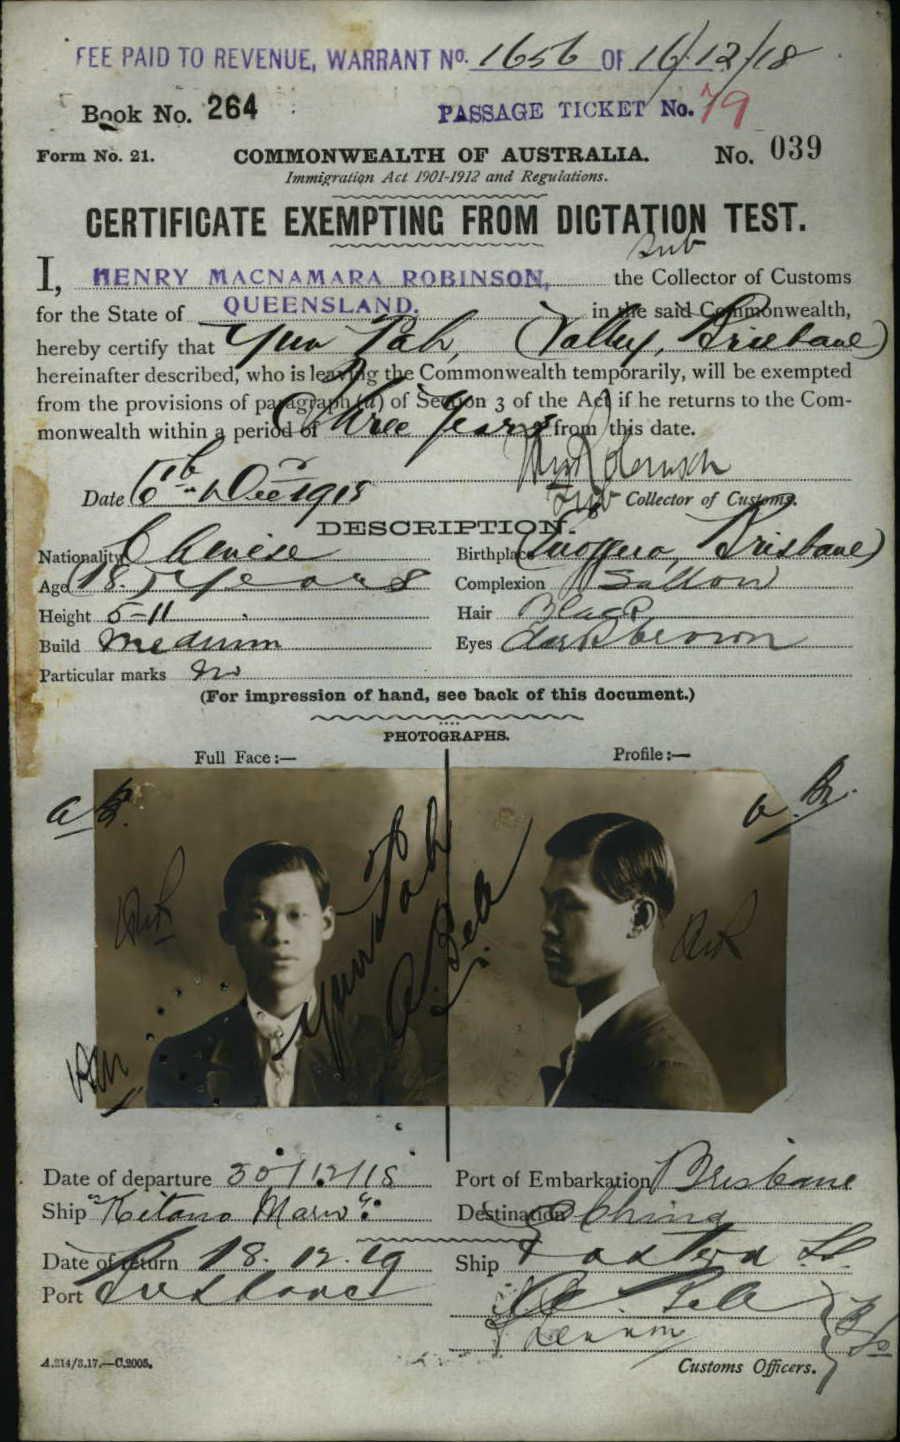 FEE PAID TO REVENUE, WARRANT No. 1656 OF 16/12/18
Book No. 264 PASSAGE TICKET No. 79
Form No. 21. COMMONWEALTH OF AUSTRALIA. No. 039
Immigration Act 1901-1912 and Regulations.
CERTIFICATE EXEMPTING FROM DICTATION TEST.
Sub
I, HENRY MACNAMARA ROBINSON, the Collector of Customs
for the State of QUEENSLAND. in the said Commonwealth,
hereby certify that Yun Pah, (Valley, Brisbane)
hereinafter described, who is leaving the Commonwealth temporarily, will be exempted
from the provisions of paragraph (a) of Section 3 of the Act if he returns to the Com-
monwealth within a period of (Three years) from this date.
Date Decr 1918 Sub Collector of Customs.
DESCRIPTION.
Nationality Chinese Birthplace Brisbane)
Age years Complexion Sallow
Height 5-11 Hair Black
Build medium Eyes dark brown
Particular marks
(For impression of hand, see back of this document.)
PHOTOGRAPHS.
Full Face:— Profile:—
Yun Pah
Date of departure 30/12/18 Port of Embarkation Brisbane
Ship "Kitano Maru" Destination China
Date of return 18.12.19 Ship
Port Brisbane
A.214/3.17.—C.2005. Customs Officers.